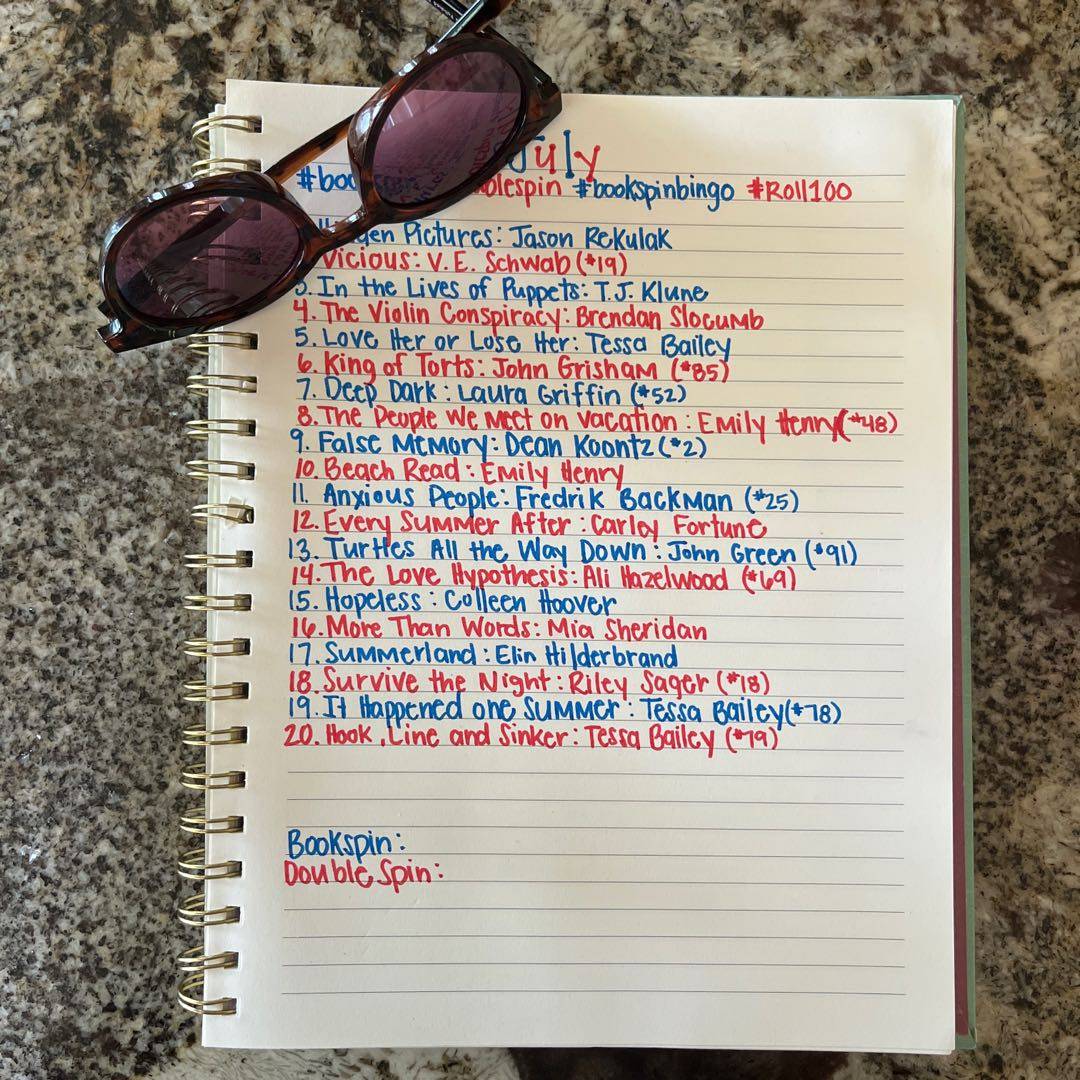 July
#boo olespin #bookspinbingo #Roll100
en Pictures: Jason Rekulak
Vicious: V.E. Schwab (#19)
3. In the Lives of Puppets: T.J. Klune
4. The Violin Conspiracy: Brendan Slocumb
5. Love Her or Lose Her: Tessa Bailey
6. King of Torts: John Grisham (#85)
7. Deep Dark: Laura Griffin (#52)
8. The People We Meet on Vacation: Emily Henry (#48)
9. False Memory: Dean Koontz (#2)
10. Beach Read: Emily Henry
11. Anxious People: Fredrik Backman (#25)
12. Every Summer After: Carley Fortune
13. Turtles All the Way Down: John Green (#91)
14. The Love Hypothesis: Ali Hazelwood (#69)
15. Hopeless: Colleen Hoover
16. More Than Words: Mia Sheridan
17. Summerland: Elin Hilderbrand
18. Survive the Night: Riley Sager (#18)
19. It Happened one Summer: Tessa Bailey (#78)
20. Hook, Line and Sinker: Tessa Bailey (#79)
Bookspin:
Double Spin: